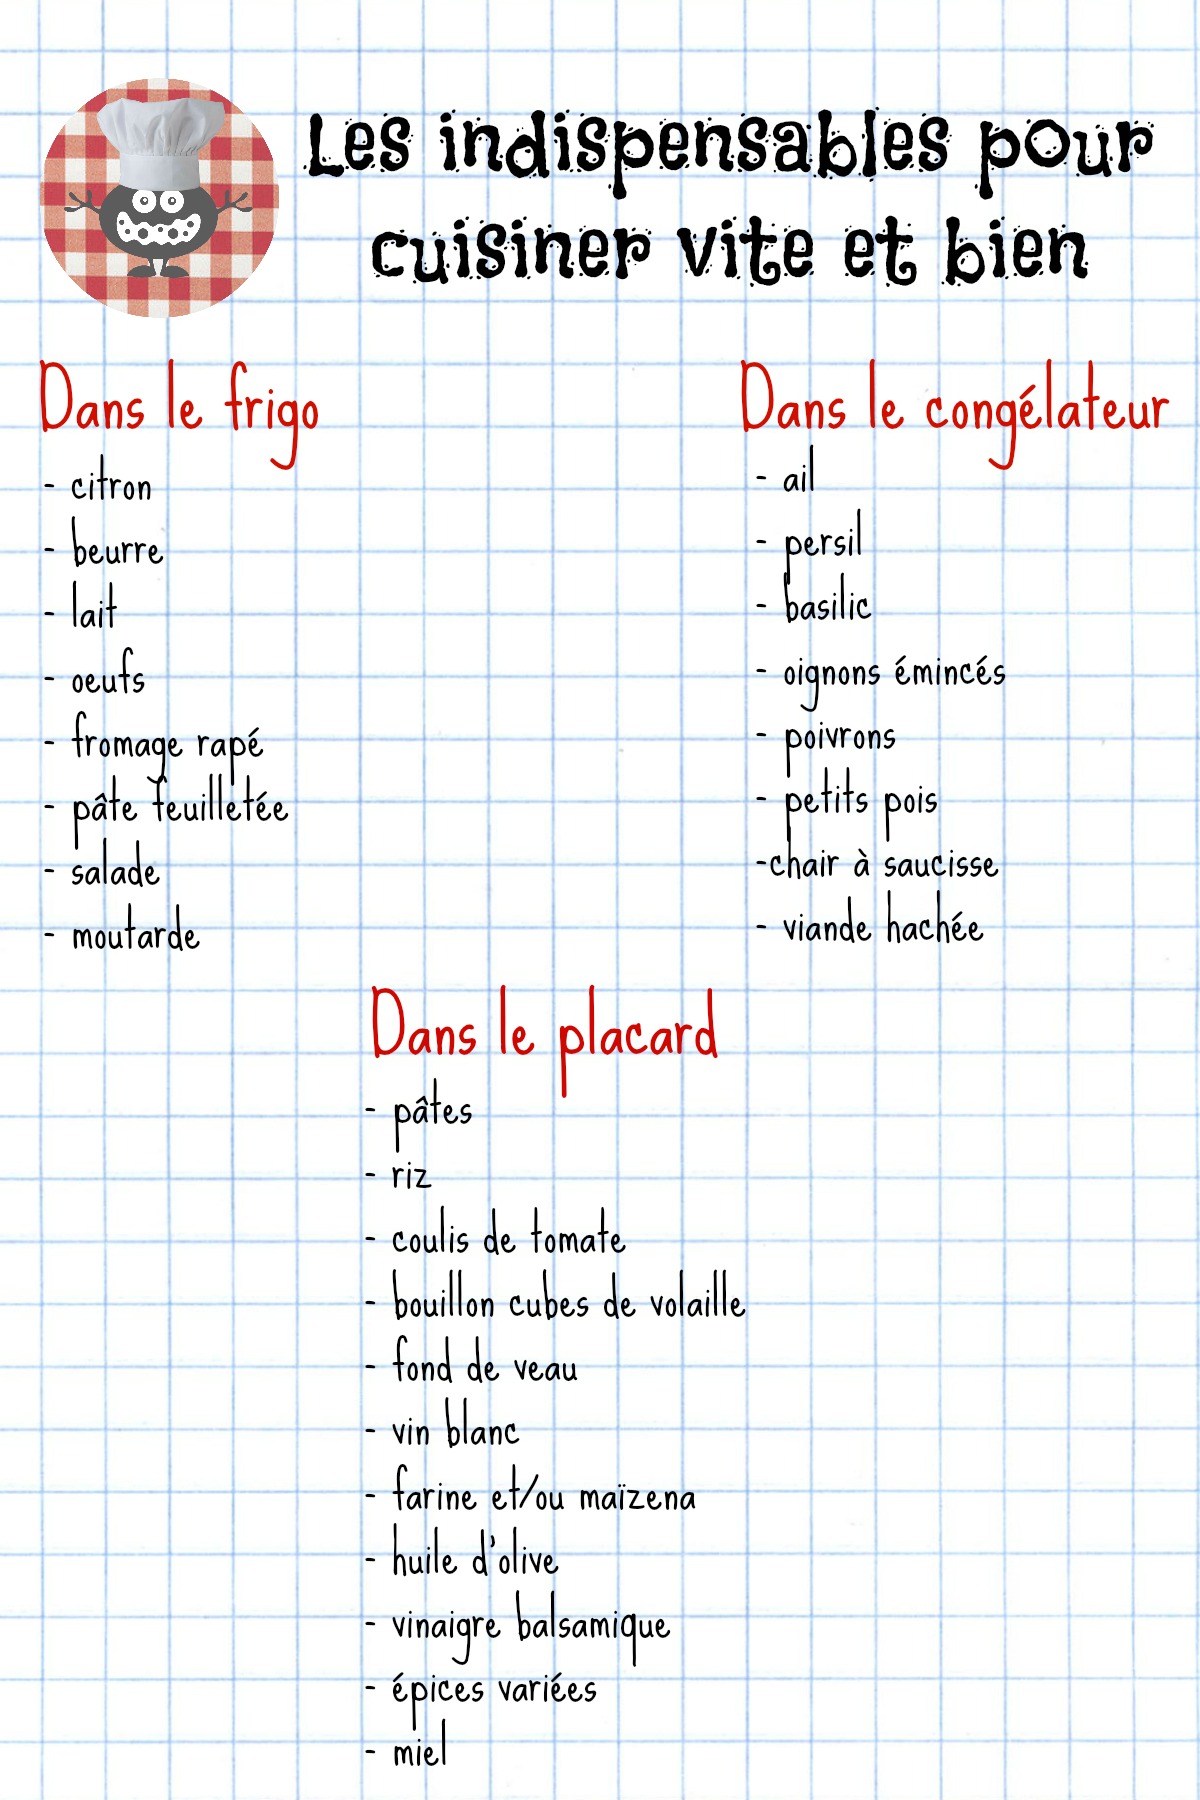 Les indispensables pour
cuisiner vite et bien
Dans le frigo
- citron
- beurre
- lait
- oeufs
- fromage rapé
- pâte feuilletée
- salade
- moutarde
Dans le congélateur
- ail
- persil
- basilic
- oignons émincés
- poivrons
- petits pois
-chair à saucisse
- viande hachée
Dans le placard
- pâtes
- riz
- coulis de tomate
- bouillon cubes de volaille
- fond de veau
- vin blanc
- farine et/ou maïzena
- huile d'olive
- vinaigre balsamique
- épices variées
- miel